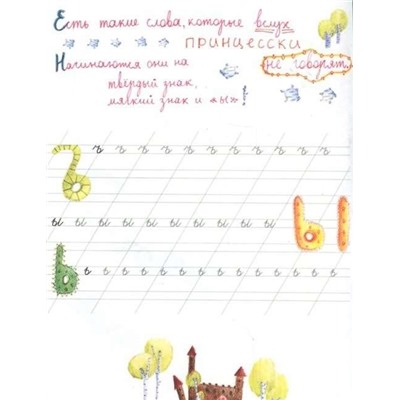 Есть такие слова, которые вслух
принцесски
Начинаются они на не говорят.
твёрдый знак,
мягкий знак и «ы»!
ъ ъ ъ ъ ъ ъ ъ ъ ъ ъ ъ ъ
ы ы ы ы ы ы ы ы ы ы ы
ь ь ь ь ь ь ь ь ь ь ь ь